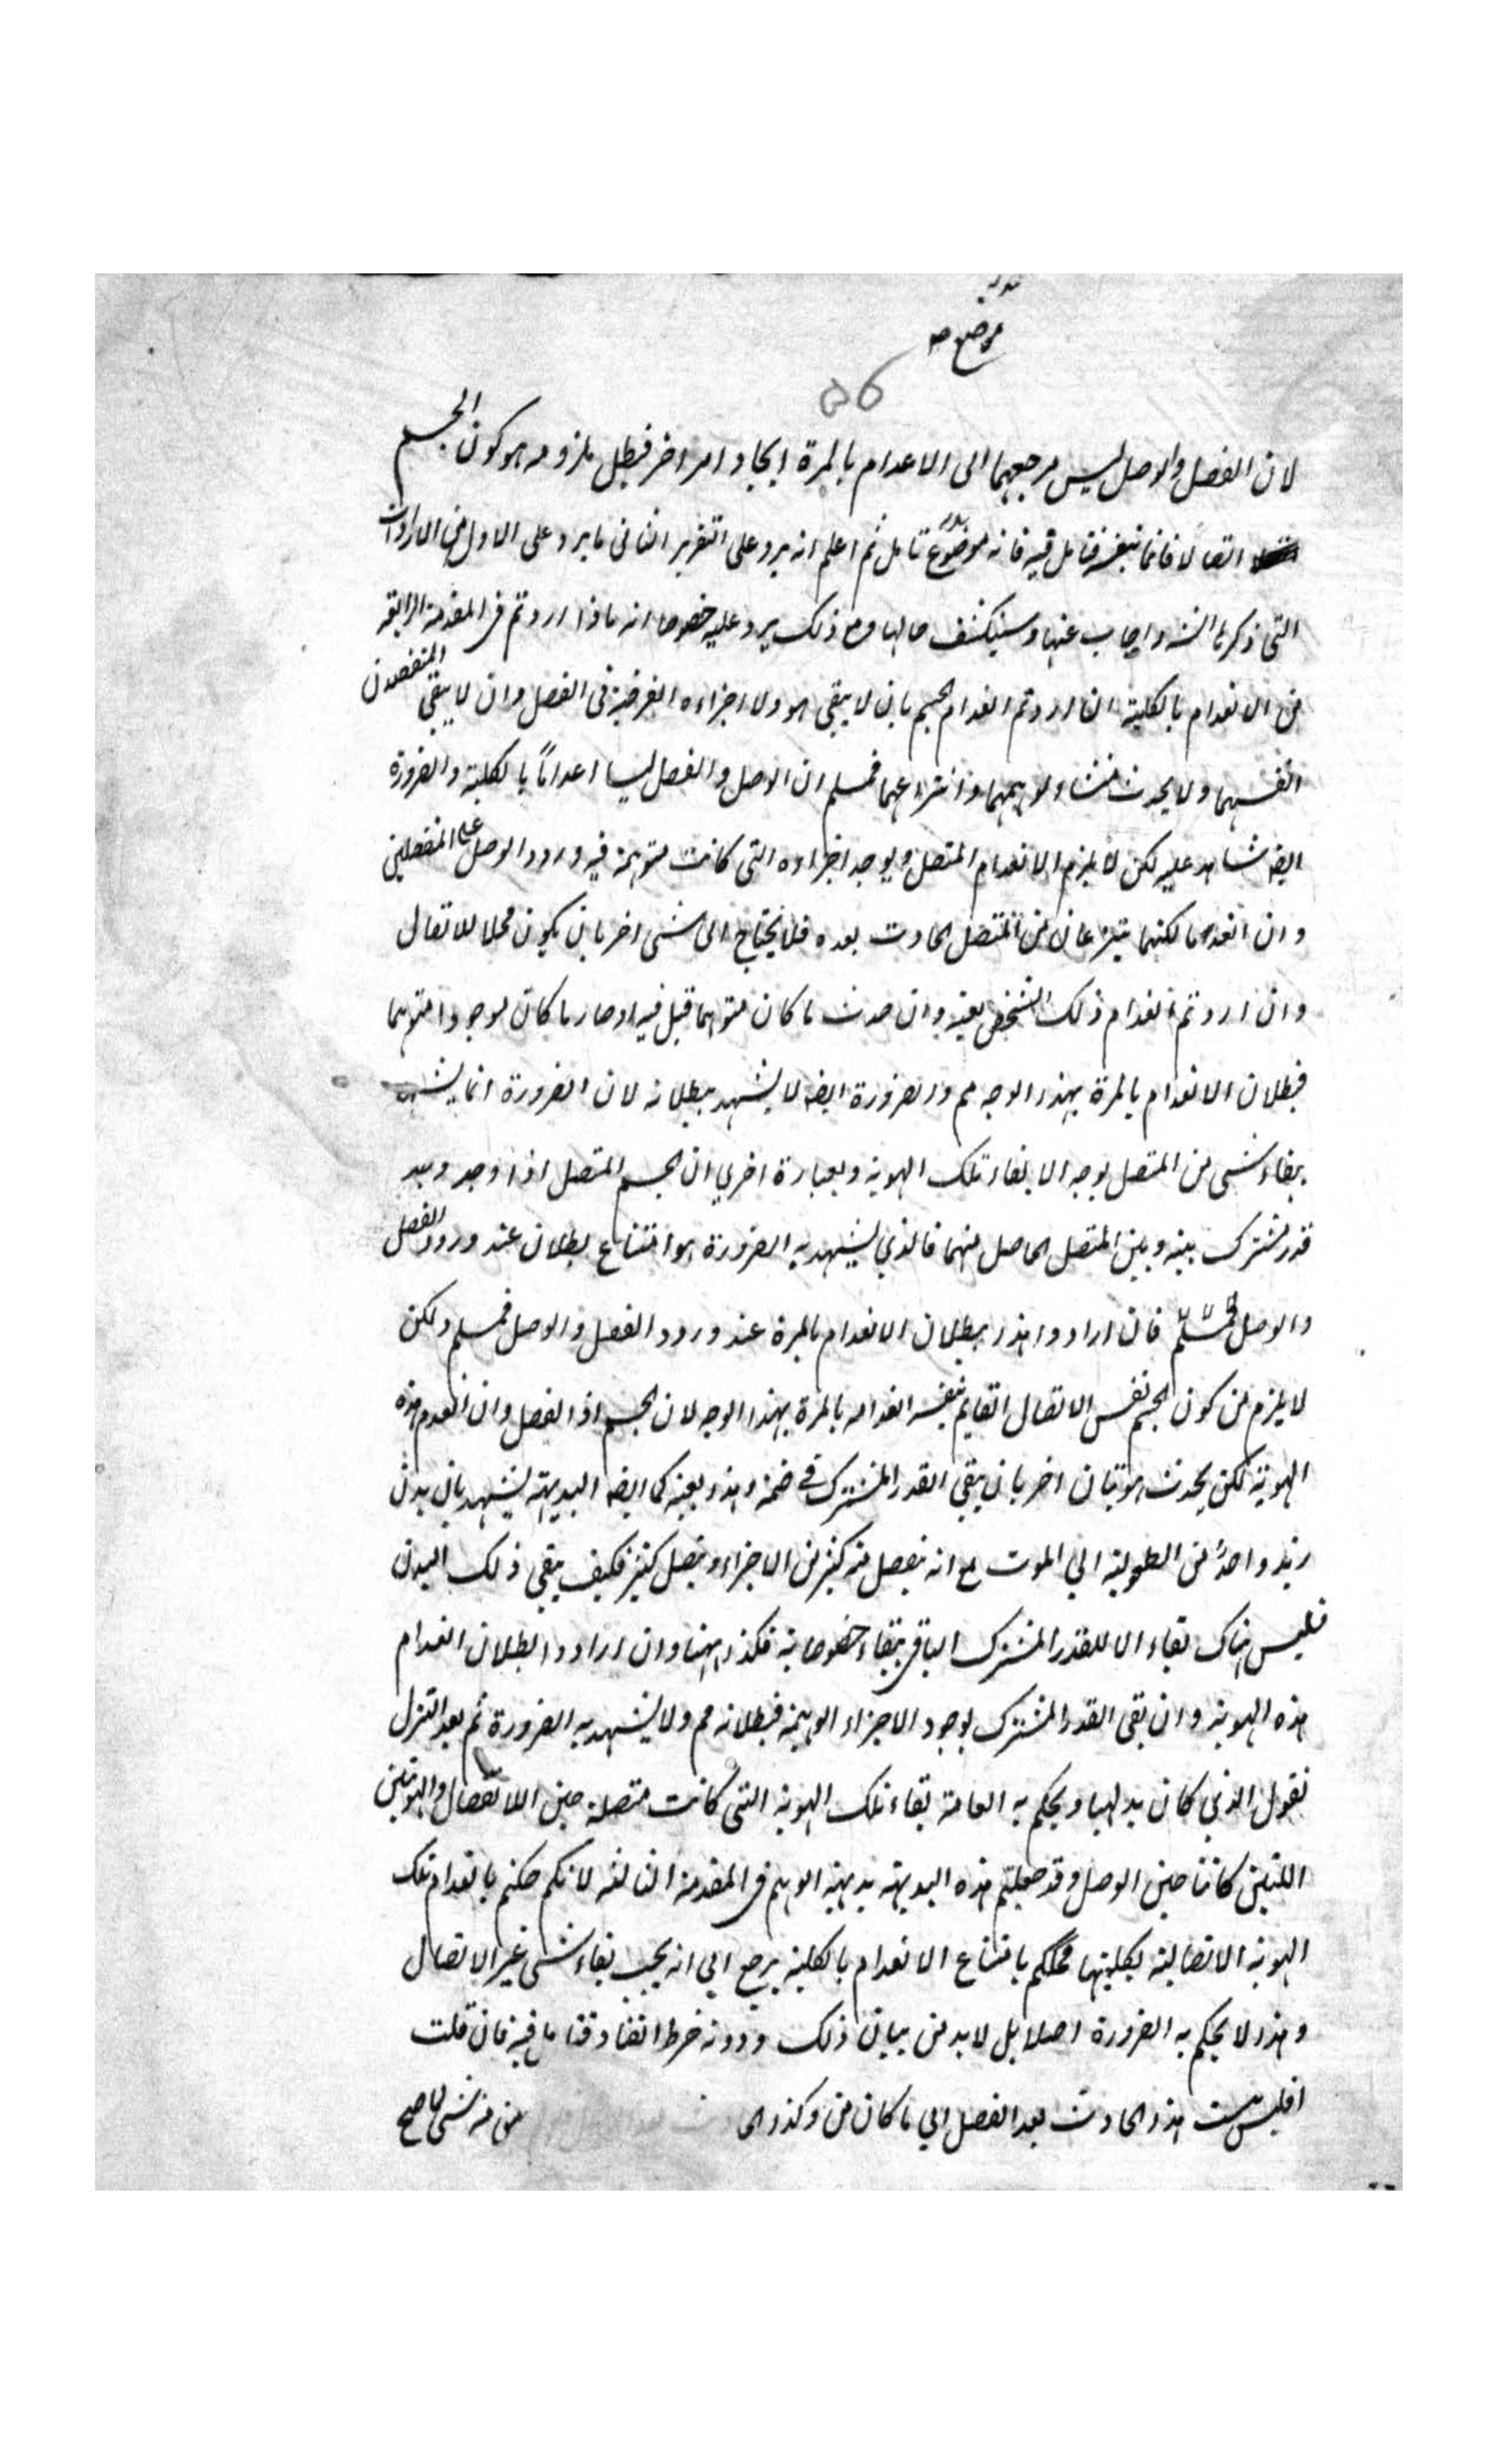 موضع صه
٥٦
لان الفصل والوصل ليس مرجعهما الى الاعدام بالمرة ايجاد امر اخر فبطل ملزومه هو كون الجسم
اتصالا قائما بنفسه فتامل فيه فانه موضع تامل ثم اعلم انه يرد على التقرير الثانى ما يرد على الاول من الايرادات
التى ذكرنا واجاب عنها وسينكشف حالها ومع ذلك يرد عليه خصوصا انه ماذا اردتم فى المقدمة الرابعة
من الانعدام بالكلية ان اردتم انعدام الجسم بان لا يبقى هو ولا اجزاءه الفرضية فى الفصل وان لا يبقى المنفصلان
انفسهما ولا يحدث منشاء لوهمهما وانتزاعهما فمسلم ان الوصل والفصل ليسا اعداما بالكلية والضرورة
ايضه شاهد عليه لكن لا يلزم الانعدام المتصل ويوجد اجزاءه التى كانت متوهمة فيه وورود الوصل على المنفصلين
وان انعدما لكنهما ينتزعان من المتصل الحادث بعده فلا يحتاج الى شى اخر بان يكون محلا للاتصال
وان اردتم انعدام ذلك الشخص بعينه وان حدث ما كان متوهما قبل فيه او صار ما كان موجودا متوهما
فبطلان الانعدام بالمرة بهذا الوجه مم والضرورة ايضه لا يشهد ببطلانه لان الضرورة انما يشهد
ببقاء شى من المتصل بوجه الا بقاء تلك الهوية وبعبارة اخرى ان الجسم المتصل اذا وجد وجد
قدر مشترك بينه وبين المتصل الحاصل منهما فالذي يشهد به الضرورة هو امتناع بطلان عند ورود الفصل
والوصل فمسلم فان ارادوا هذا ببطلان الانعدام بالمرة عند ورود الفصل والوصل فمسلم ولكن
لا يلزم من كون الجسم نفس الاتصال القايم بنفسه انعدامه بالمرة بهذا الوجه لان الجسم اذا انفصل وان انعدم هذه
الهوية لكن يحدث هويتان اخر بان يبقى القدر المشترك فى ضمنه وهذا بعينه كما ايضه البديهة يشهد بان بدن
زيد واحد من الطفولية الي الموت مع انه ينفصل منه كثير من الاجزاء ويتصل كثير فكيف يبقى ذلك البدن
فليس هناك بقاء الا للقدر المشترك الباقى ببقاء خصوصاته فكذا ههنا وان ارادوا بطلان انعدام
هذه الهوية وان بقى القدر المشترك بوجود الاجزاء الوهمية فبطلانه مم ولا يشهد به الضرورة ثم بعد التنزل
نقول الذي كان بديهيا ويحكم به العامة بقاء تلك الهوية التى كانت متصلة حين الانفصال والهويتين
اللتين كانتا حين الوصل وقد جعلتم هذه البديهة بديهة الوهم فى المقدمة الثالثة لانكم حكمتم بانعدام تلك
الهوية الاتصالية بكليتها فحكمكم بامتناع الانعدام بالكلية يرجع الي انه يجب بقاء شى غير الاتصال
وهذا لا يحكم به الضرورة اصلا بل لابد من بيان ذلك ودونه خرط القتاد فتامل فيه فان قلت
افليس نسبت هذا الحادث بعد الفصل الي ما كان من وكذا الى من منه شى لا صح